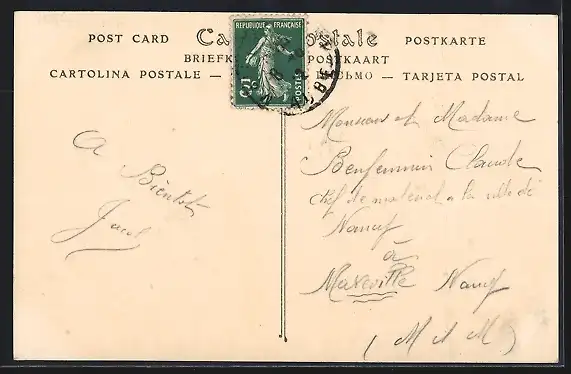 POST CARD Ca Postale POSTKARTE
BRIEFK POSTKAART
CARTOLINA POSTALE — ПИСЬМО — TARJETA POSTAL
REPUBLIQUE FRANÇAISE
5c POSTES
A
Bientôt
Jacob
Monsieur et Madame
Benjamin Claude
chef de matériel a la ville de
Nancy
à
Maxeville Nancy
(M et M)